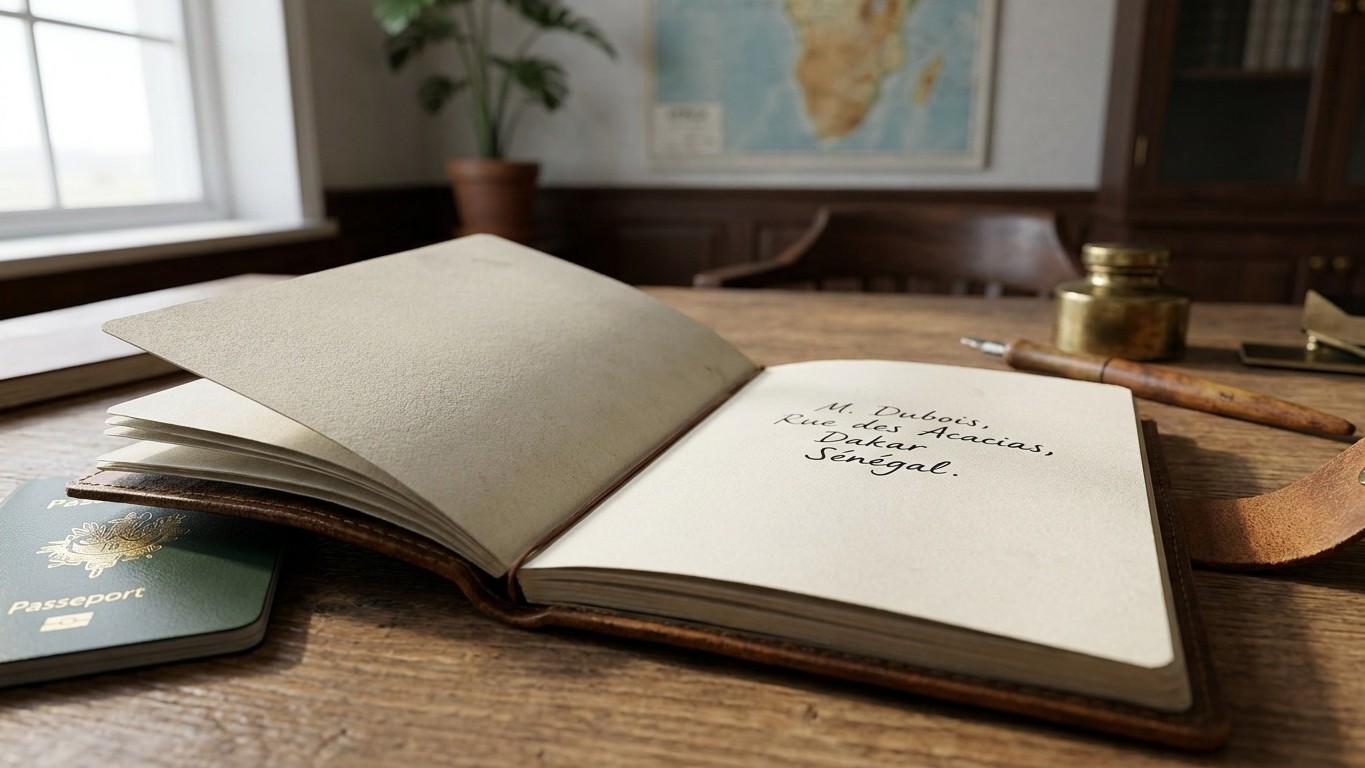 M. Dubois,
Rue des Acacias,
Dakar
Sénégal.
Passeport